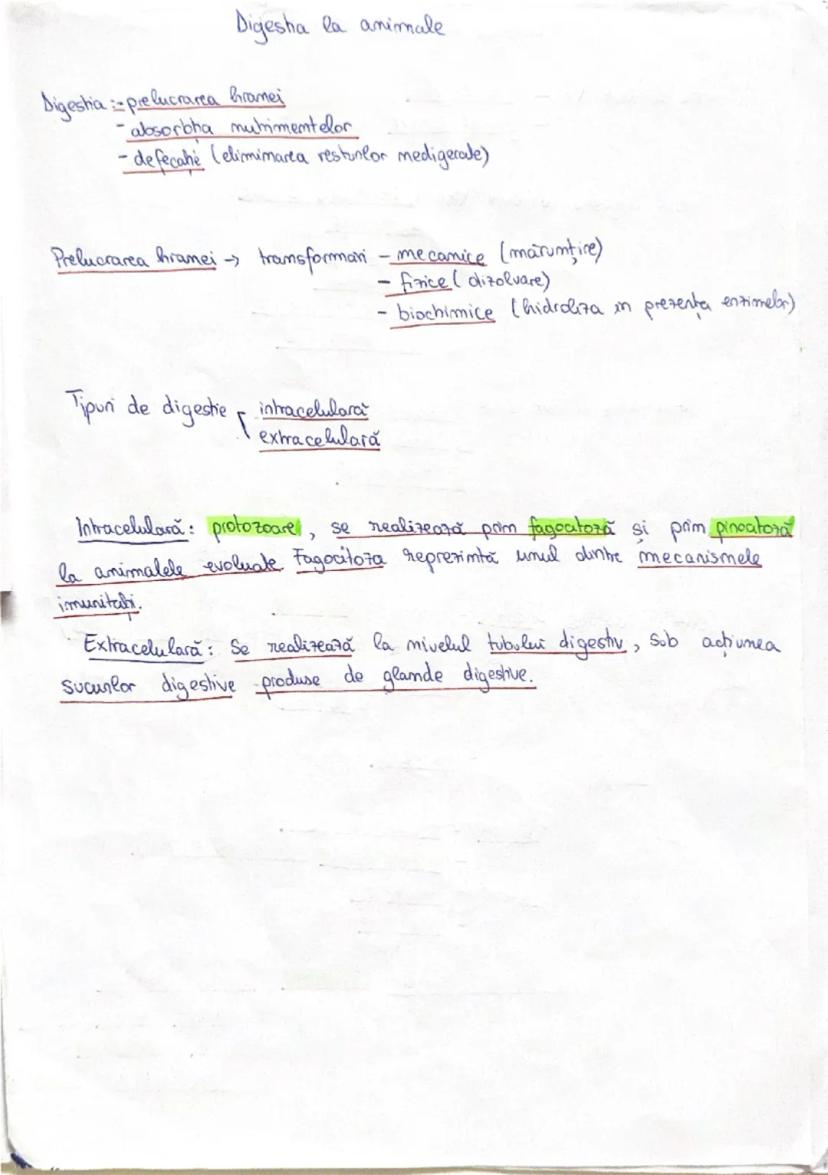 Digestia la animale
Digestia :- prelucrarea hranei
- absorbția nutrimentelor
- defecație (eliminarea resturilor nedigerate)
Prelucrarea hranei → transformări - mecanice (mărunțire)
- fizice (dizolvare)
- biochimice (hidroliza în prezența enzimelor)
Tipuri de digestie intracelulară
extracelulară
Intracelulară: protozoare, se realizează prin fagocitoză și prin pinocitoză
la animalele evoluate Fagocitoza reprezintă unul dintre mecanismele
imunității.
Extracelulară: Se realizează la nivelul tubului digestiv, sub acțiunea
sucurilor digestive produse de glande digestive.